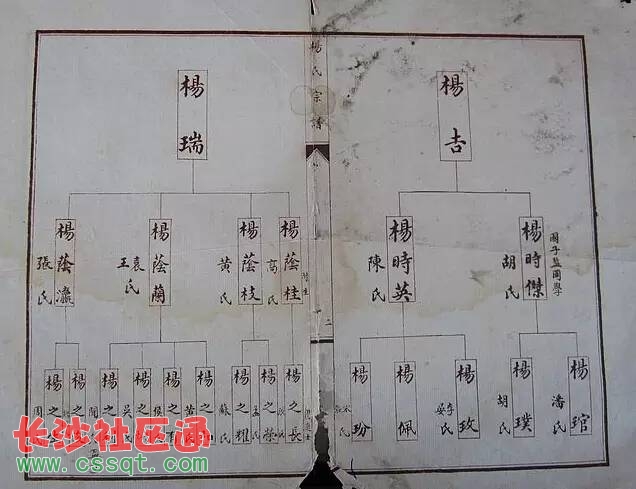 楊氏宗譜
二
楊吉
楊時傑
國子監周學
胡氏
楊時英
陳氏
楊琯
潘氏
楊璞
胡氏
楊玫
李氏
楊佩
楊玢
氏
楊瑞
楊蔭桂
高氏
楊蔭枝
黃氏
楊蔭蘭
袁氏
王
楊蔭瀟
張氏
楊之長
楊之榮
孟氏
楊之耀
蘇氏
楊之
黃
楊之
侯
楊之
吳
楊之
楊之
楊之
周
长沙社区通
www.cssqt.com